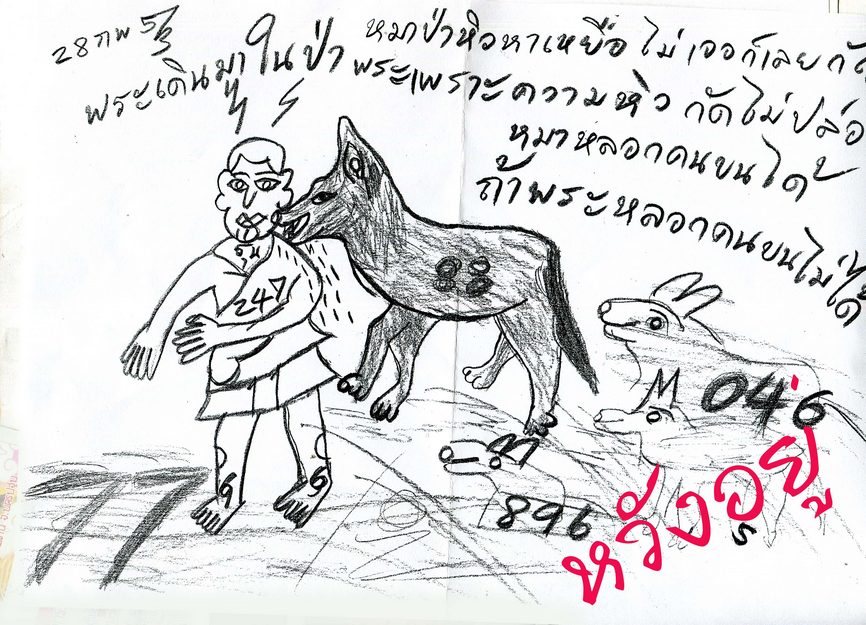 28 กพ 57
พระเดินมาในป่า
หมาป่าหิวหาเหยื่อ ไม่เจอก็เลยกัด
พระเพราะความหิว กัดไม่ปล่อ
หมาหลอกคนขนได้
ถ้าพระหลอกคนขนไม่ได้
247
046
896
77
หวังอยู่